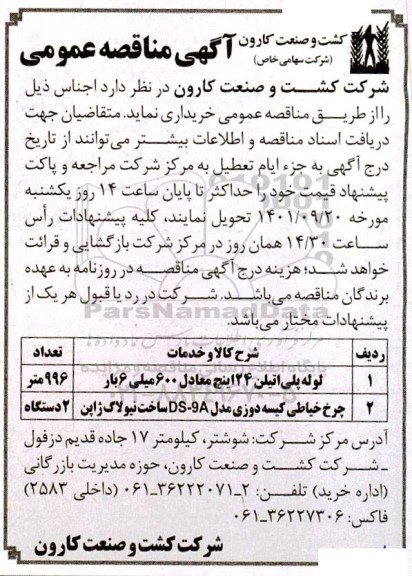 کشت و صنعت کارون
(شرکت سهامی خاص)
آگهی مناقصه عمومی
شرکت کشت و صنعت کارون در نظر دارد اجناس ذیل
را از طریق مناقصه عمومی خریداری نماید. متقاضیان جهت
دریافت اسناد مناقصه و اطلاعات بیشتر می‌توانند از تاریخ
درج آگهی به جزء ایام تعطیل به مرکز شرکت مراجعه و پاکت
پیشنهاد قیمت خود را حداکثر تا پایان ساعت ۱۴ روز یکشنبه
مورخه ۱۴۰۱/۰۹/۲۰ تحویل نمایند، کلیه پیشنهادات رأس
ساعت ۱۴/۳۰ همان روز در مرکز شرکت بازگشایی و قرائت
خواهد شد؛ هزینه درج آگهی مناقصه در روزنامه به عهده
برندگان مناقصه می‌باشد. شرکت در رد یا قبول هر یک از
پیشنهادات مختار می‌باشد.
ParsNamadData
ردیف شرح کالا و خدمات تعداد
۱ لوله پلی اتیلن ۲۴ اینچ معادل ۶۰۰ میلی ۶ بار ۹۹۶ متر
۲ چرخ خیاطی کیسه دوزی مدل DS-9A ساخت نیولانگ ژاپن ۲ دستگاه
آدرس مرکز شرکت: شوشتر، کیلومتر ۱۷ جاده قدیم دزفول
ـ شرکت کشت و صنعت کارون، حوزه مدیریت بازرگانی
(اداره خرید) تلفن: ۲ـ۳۶۲۲۲۰۷۱ـ۰۶۱ (داخلی ۲۵۸۳)
فاکس: ۳۶۲۲۷۳۰۶ـ۰۶۱
شرکت کشت و صنعت کارون